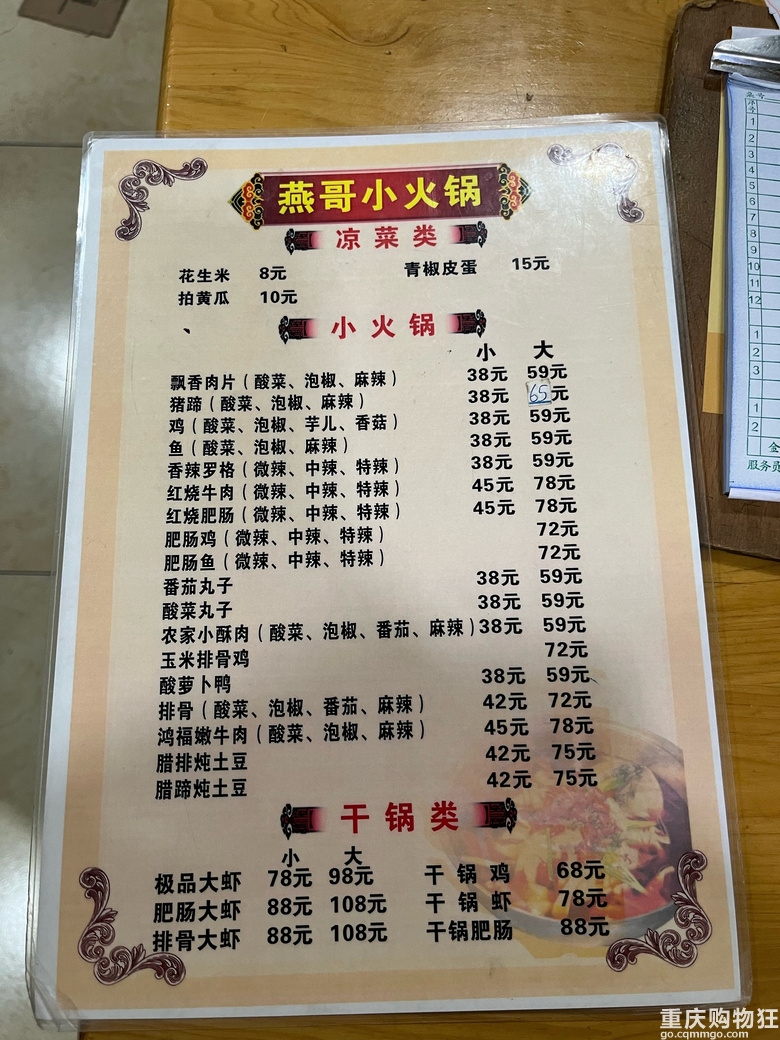 燕哥小火锅
凉菜类
花生米 8元 青椒皮蛋 15元
拍黄瓜 10元
小火锅
小 大
飘香肉片（酸菜、泡椒、麻辣） 38元 59元
猪蹄（酸菜、泡椒、麻辣） 38元 65元
鸡（酸菜、泡椒、芋儿、香菇） 38元 59元
鱼（酸菜、泡椒、麻辣） 38元 59元
香辣罗格（微辣、中辣、特辣） 38元 59元
红烧牛肉（微辣、中辣、特辣） 45元 78元
红烧肥肠（微辣、中辣、特辣） 45元 78元
肥肠鸡（微辣、中辣、特辣） 72元
肥肠鱼（微辣、中辣、特辣） 72元
番茄丸子 38元 59元
酸菜丸子 38元 59元
农家小酥肉（酸菜、泡椒、番茄、麻辣） 38元 59元
玉米排骨鸡 72元
酸萝卜鸭 38元 59元
排骨（酸菜、泡椒、番茄、麻辣） 42元 72元
鸿福嫩牛肉（酸菜、泡椒、麻辣） 45元 78元
腊排炖土豆 42元 75元
腊蹄炖土豆 42元 75元
干锅类
小 大
极品大虾 78元 98元 干锅鸡 68元
肥肠大虾 88元 108元 干锅虾 78元
排骨大虾 88元 108元 干锅肥肠 88元
序号
1
2
3
4
5
6
7
8
9
10
11
12
1
2
3
1
2
金
服务员
重庆购物狂
go.cqmmgo.com